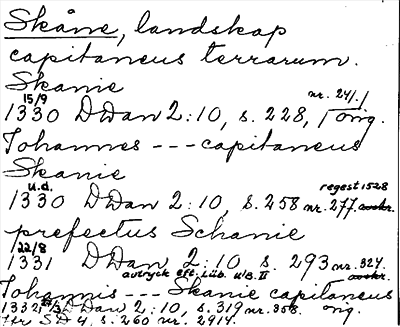 Skåne, landskap
capitaneus terrarum
Skanie
15/9 nr. 241.
1330 DDan 2:10, s. 228, orig.
Johannes --- capitaneus
Skanie
u.d. regest 1528
1330 DDan 2:10, s. 258 nr. 277. avskr.
prefectus Schanie
22/8
1331 DDan 2:10 s. 293 nr. 324.
avtryck eft. Lüb. UB. II avskr.
Johannis --- Skanie capitaneus
1332 DDan 2:10, s. 319 nr. 353. orig.
jfr SD 4, s. 260 nr. 2914.